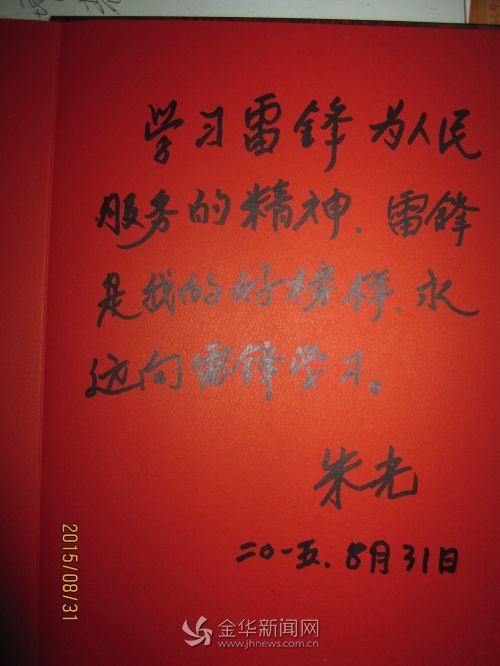 学习雷锋为人民
服务的精神、雷鋒
是我的好榜样、永
远向雷锋学习。
朱光
二〇一五.8月31日
2015/08/31
金华新闻网
www.jhnews.com.cn